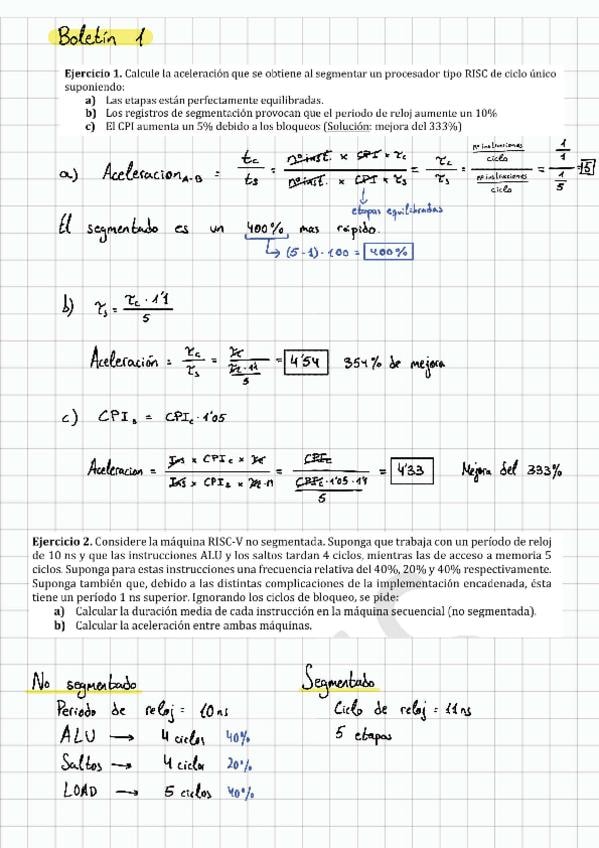 Boletín 1
Ejercicio 1. Calcule la aceleración que se obtiene al segmentar un procesador tipo RISC de ciclo único
suponiendo:
a) Las etapas están perfectamente equilibradas.
b) Los registros de segmentación provocan que el periodo de reloj aumente un 10%
c) El CPI aumenta un 5% debido a los bloqueos (Solución: mejora del 333%)
a) Aceleracion A-B = tc / ts = nº inst. × CPI × τc / nº inst. × CPI × τs = τc / τs = nº instrucciones / ciclo / nº instrucciones / ciclo = 1/1 / 1/5 = 5
etapas equilibradas
El segmentado es un 400% mas rápido.
↳ (5-1)·100 = 400%
b) τs = τc · 1'1 / 5
Aceleración = τc / τs = τc / τc · 1'1 / 5 = 4'54 354% de mejora
c) CPIs = CPIc · 1'05
Aceleracion = Ins × CPIc × τc / Ins × CPIs × τc · 1'1 = CPIc / CPIc · 1'05 · 1'1 / 5 = 4'33 Mejora del 333%
Ejercicio 2. Considere la máquina RISC-V no segmentada. Suponga que trabaja con un período de reloj
de 10 ns y que las instrucciones ALU y los saltos tardan 4 ciclos, mientras las de acceso a memoria 5
ciclos. Suponga para estas instrucciones una frecuencia relativa del 40%, 20% y 40% respectivamente.
Suponga también que, debido a las distintas complicaciones de la implementación encadenada, ésta
tiene un período 1 ns superior. Ignorando los ciclos de bloqueo, se pide:
a) Calcular la duración media de cada instrucción en la máquina secuencial (no segmentada).
b) Calcular la aceleración entre ambas máquinas.
No segmentado
Periodo de reloj = 10 ns
ALU → 4 ciclos 40%
Saltos → 4 ciclos 20%
LOAD → 5 ciclos 40%
Segmentado
Ciclo de reloj = 11 ns
5 etapas